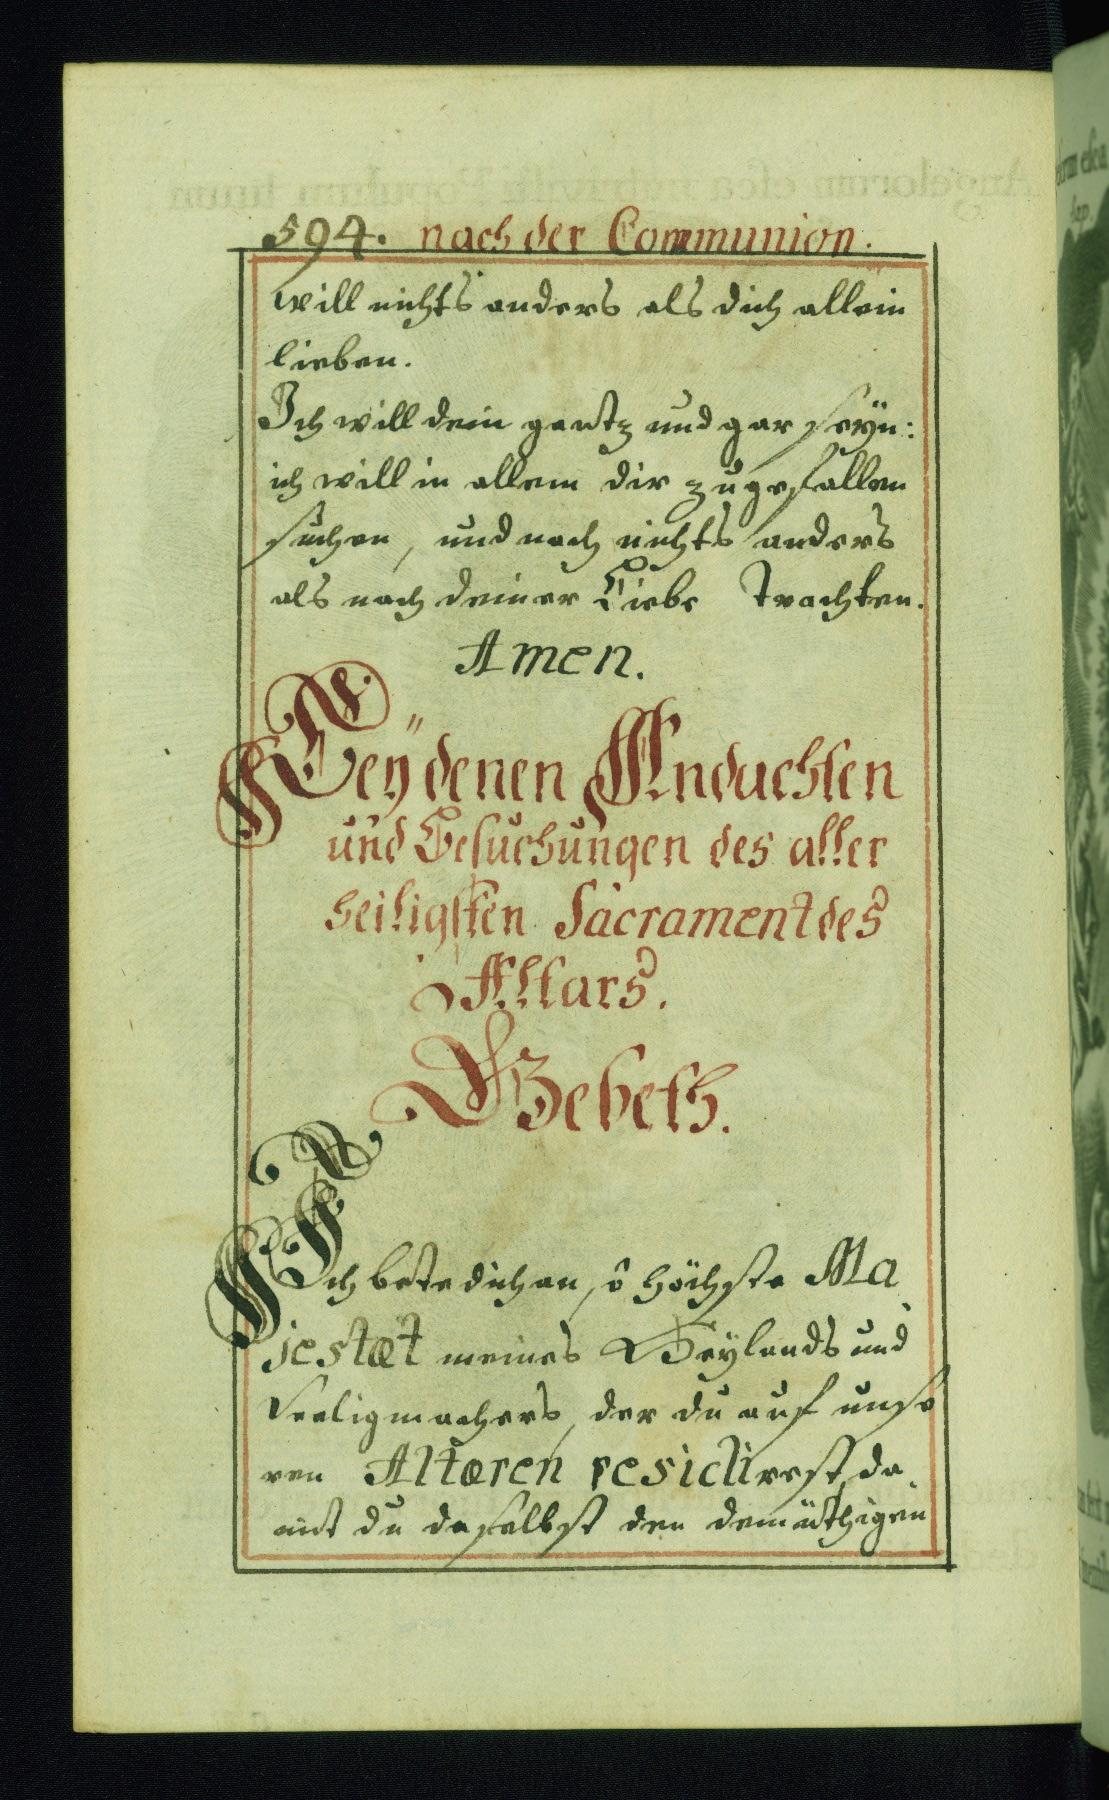 594. nach der Communion.
will nichts anders als dich allein
lieben.
Ich will dein gantz und gar seÿn:
ich will in allem dir zugefallen
suchen, und nach nichts anders
als nach deiner Liebe Trachten.
Amen.
Beÿ denen Andachten
und Besuchungen des aller
heiligsten Sacrament des
Altars.
Gebeth.
Ich bete dich an, ô höchste Ma
jestæt meines Heylands und
Seeligmachers, der du auf unse
ren Altæren residirest, da
mit du daselbst den demüthigen